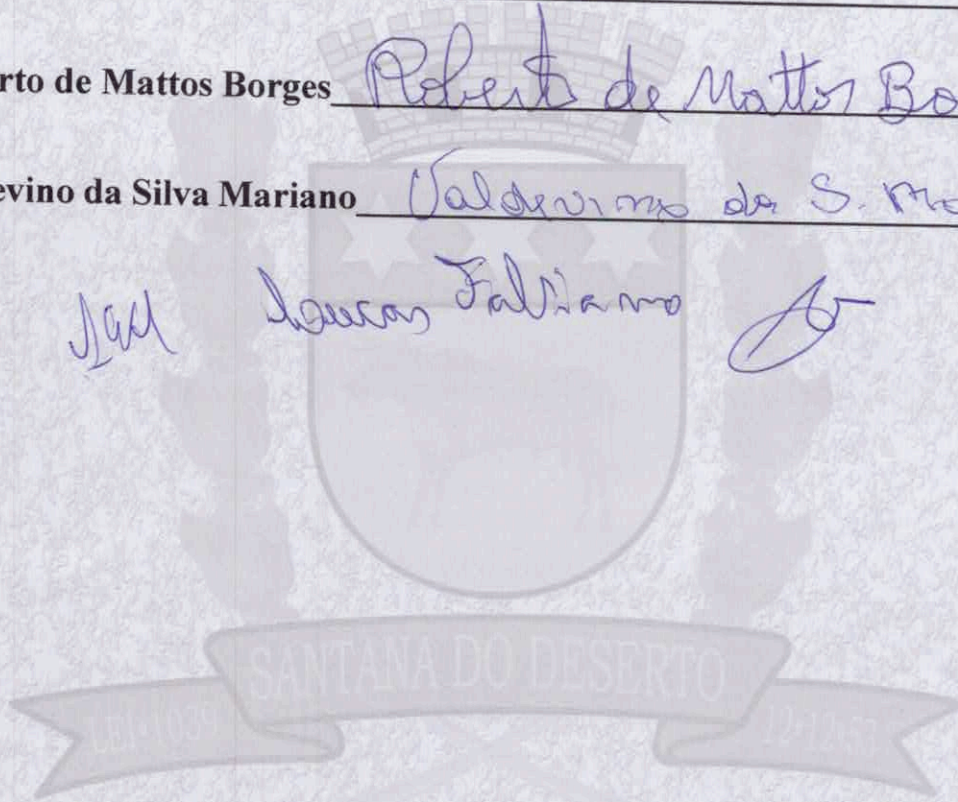 rto de Mattos Borges Roberto de Mattos Bo
evino da Silva Mariano Valdevino da S. Ma
Fabiano
SANTANA DO DESERTO
LEI-1039 12-12-53